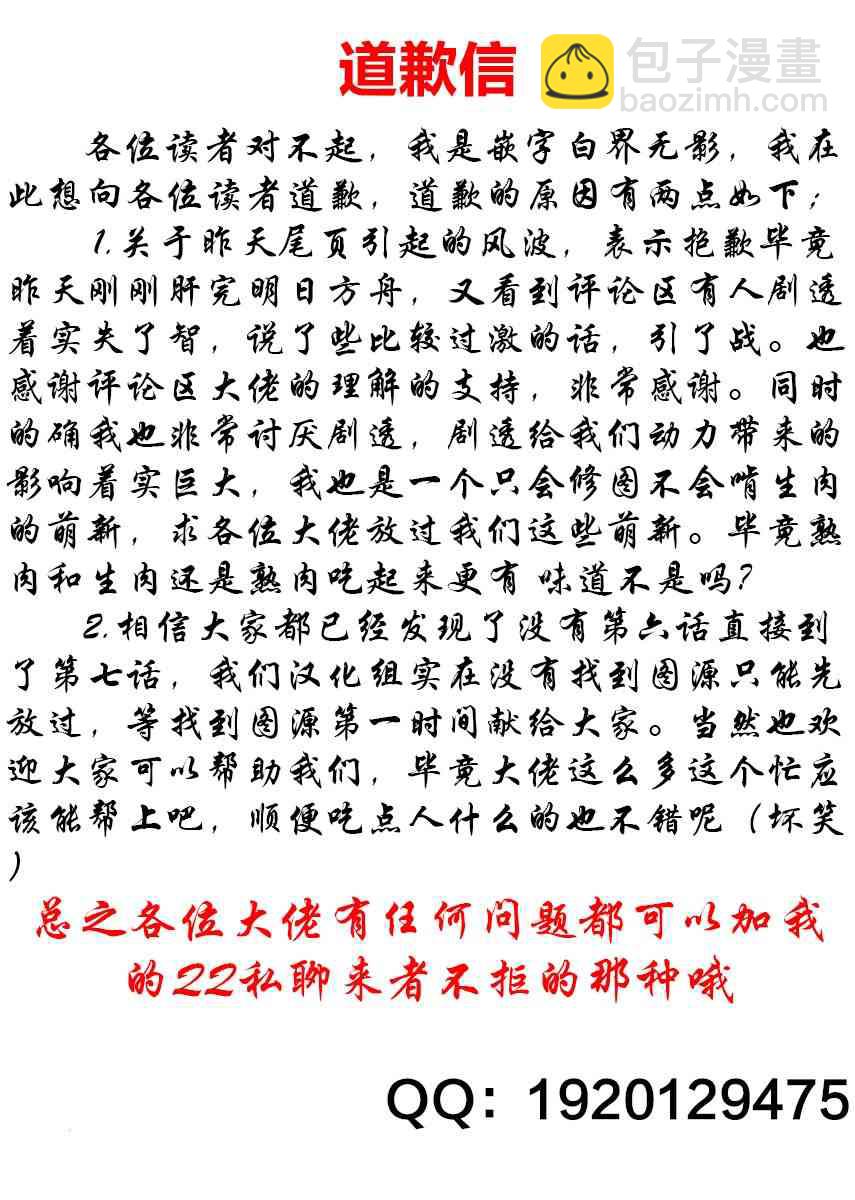 道歉信
包子漫畫
baozimh.com
各位读者对不起，我是嵌字白界无影，我在
此想向各位读者道歉，道歉的原因有两点如下；
1.关于昨天尾页引起的风波，表示抱歉毕竟
昨天刚刚肝完明日方舟，又看到评论区有人剧透
着实失了智，说了些比较过激的话，引了战。也
感谢评论区大佬的理解的支持，非常感谢。同时
的确我也非常讨厌剧透，剧透给我们动力带来的
影响着实巨大，我也是一个只会修图不会啃生肉
的萌新，求各位大佬放过我们这些萌新。毕竟熟
肉和生肉还是熟肉吃起来更有 味道不是吗？
2.相信大家都已经发现了没有第六话直接到
了第七话，我们汉化组实在没有找到图源只能先
放过，等找到图源第一时间献给大家。当然也欢
迎大家可以帮助我们，毕竟大佬这么多这个忙应
该能帮上吧，顺便吃点人什么的也不错呢（坏笑
）
总之各位大佬有任何问题都可以加我
的QQ私聊来者不拒的那种哦
QQ：1920129475